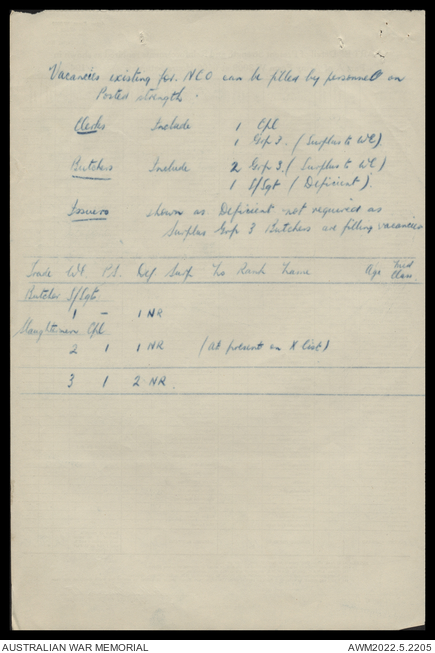 Vacancies existing for NCO can be filled by personnel on
Posted strength.
Clerks Include 1 Cpl
1 Grp 3. (Surplus to WE)
Butchers Include 2 Grp 3. (Surplus to WE)
1 S/Sgt (Deficient).
Issuers shown as Deficient not required as
Surplus Grp 3 Butchers are filling vacancies
Trade WE P.S. Def Surp No Rank Name Age Med Class
Butcher S/Sgt
1 - 1 NR
Slaughtermen Cpl
2 1 1 NR (At present on X list)
3 1 2 NR.
AUSTRALIAN WAR MEMORIAL AWM2022.5.2205